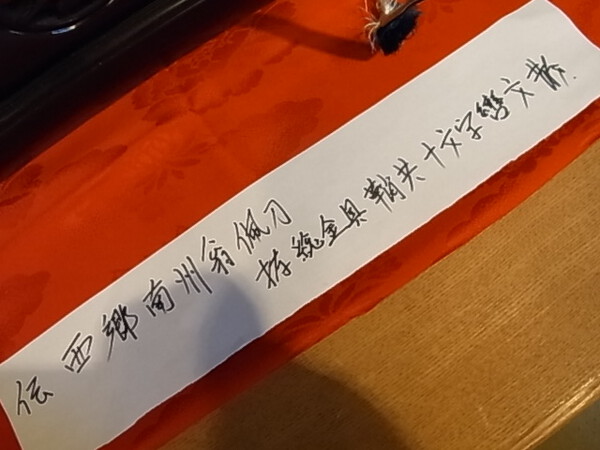 伝西郷南州翁佩刀
拵総金具鞘共十文字轡文散